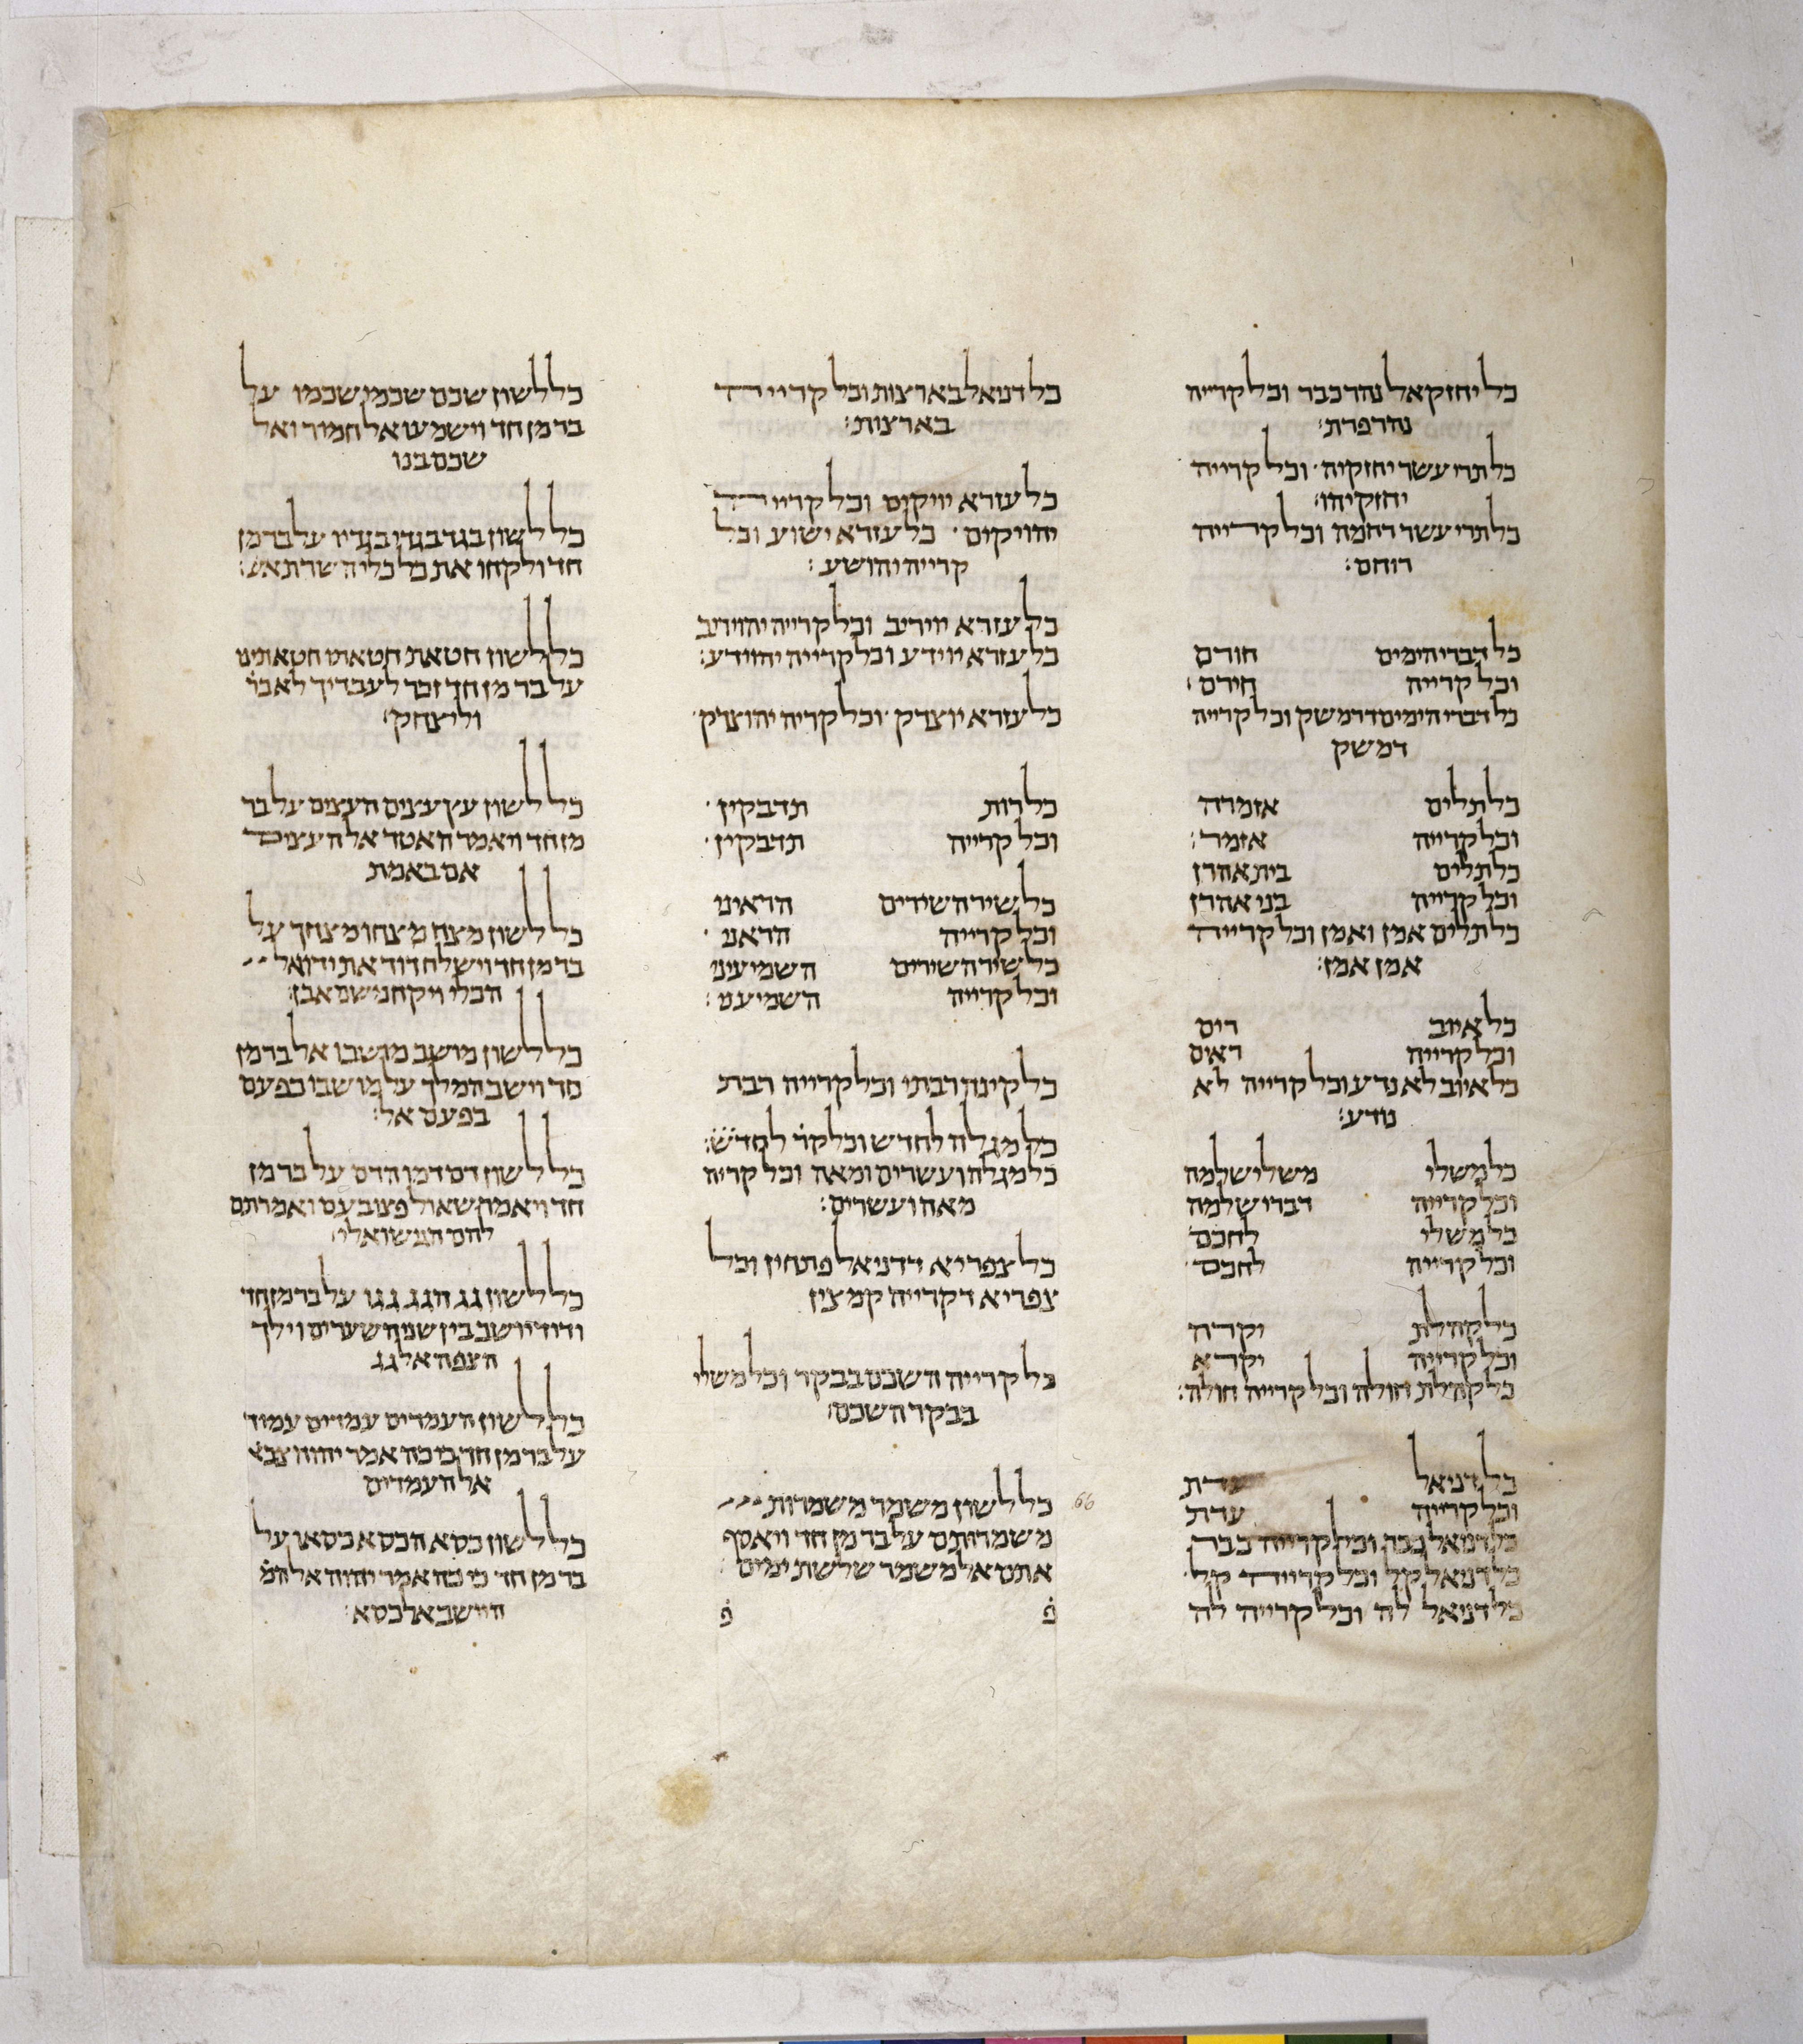 כל יחזקאל נהר כבר וכל קריה
נהר פרת׃
כל תרי עשר יחזקיה וכל קרייה
יחזקיהו׃
כל תרי עשר רחמה וכל קרייה
רוחם׃
כל דברי הימים חורם
וכל קרייה חירם׃
כל דברי הימים דרמשק וכל קרייה
דמשק
כל תלים אזמרה
וכל קרייה אזמר׃
כל תלים בית אהרן
וכל קרייה בני אהרן
כל תלים אמן ואמן וכל קרייה
אמן אמן׃
כל איוב רים
וכל קרייה ראים
כל איוב לא נדע וכל קרייה לא
נודע׃
כל משלי משלי שלמה
וכל קרייה דברי שלמה
כל משלי לחכם
וכל קרייה לחכם
כל קהלת יקרה
וכל קרייה יקרא
כל קהלת חולה וכל קרייה חולה׃
כל דניאל עדת
וכל קרייה עדת
כל דניאל ככה וכל קרייה ככה
כל דניאל קל וכל קרייה קל
כל דניאל לה וכל קרייה לה
כל דניאל בארצות וכל קרייה
בארצות׃
כל עזרא יויקים וכל קרייה
יהויקים כל עזרא ישוע וכל
קרייה יהושע׃
כל עזרא יויריב וכל קרייה יהויריב
כל עזרא יוידע וכל קרייה יהוידע׃
כל עזרא יוצדק וכל קריה יהוצדק
כל רות תדבקין
וכל קרייה תדבקין
כל שיר השירים הראיני
וכל קרייה הראני
כל שיר השירים השמיעיני
וכל קרייה השמיעני׃
כל קינה רבתי וכל קרייה רבת
כל מגלה לחדש וכל קר לחדש׃
כל מגלה ועשרים ומאה וכל קריה
מאה ועשרים׃
כל צפריא דדניאל פתחין וכל
צפריא דקרייה קמצין
כל קרייה השכם בבקר וכל משלי
בבקר השכם׃
66
כל לשון משמר משמרות
משמרותם על בר מן חד ויאסף
אתם אל משמר שלשת ימים
פ פ
כל לשון שכם שכמי שכמו על
בר מן חד וישמעו אל חמור ואל
שכם בנו
כל לשון בגד בגדו בגדיו על בר מן
חד ולקחו את כל כלי השרת אש׃
כל לשון חטאת חטאתו חטאתינו
על בר מן חד זכר לעבדיך לאבר
וליצחק׃
כל לשון עץ עצים העצים על בר
מן חד ויאמר האטד אל העצים
אם באמת
כל לשון מצח מצחו מצחך על
בר מן חד וישלח דוד את ידו אל
הכלי ויקח משם אבן׃
כל לשון מושב מושבו אל בר מן
חד וישב המלך על מושבו כפעם
בפעם אל׃
כל לשון דם דמו הדם על בר מן
חד ויאמר שאול פצו בעם ואמרתם
להם הגישו אלי׃
כל לשון גג הגג גגו על בר מן חד
ודוד יושב בין שני השערים וילך
הצפה אל גג
כל לשון העמדים עמדים עמוד
על בר מן חד כי כה אמר יהוה צבא
אל העמדים
כל לשון כסא הכסא כסאו על
בר מן חד כי כה אמר יהוה אל המ
היושב אל כסא׃